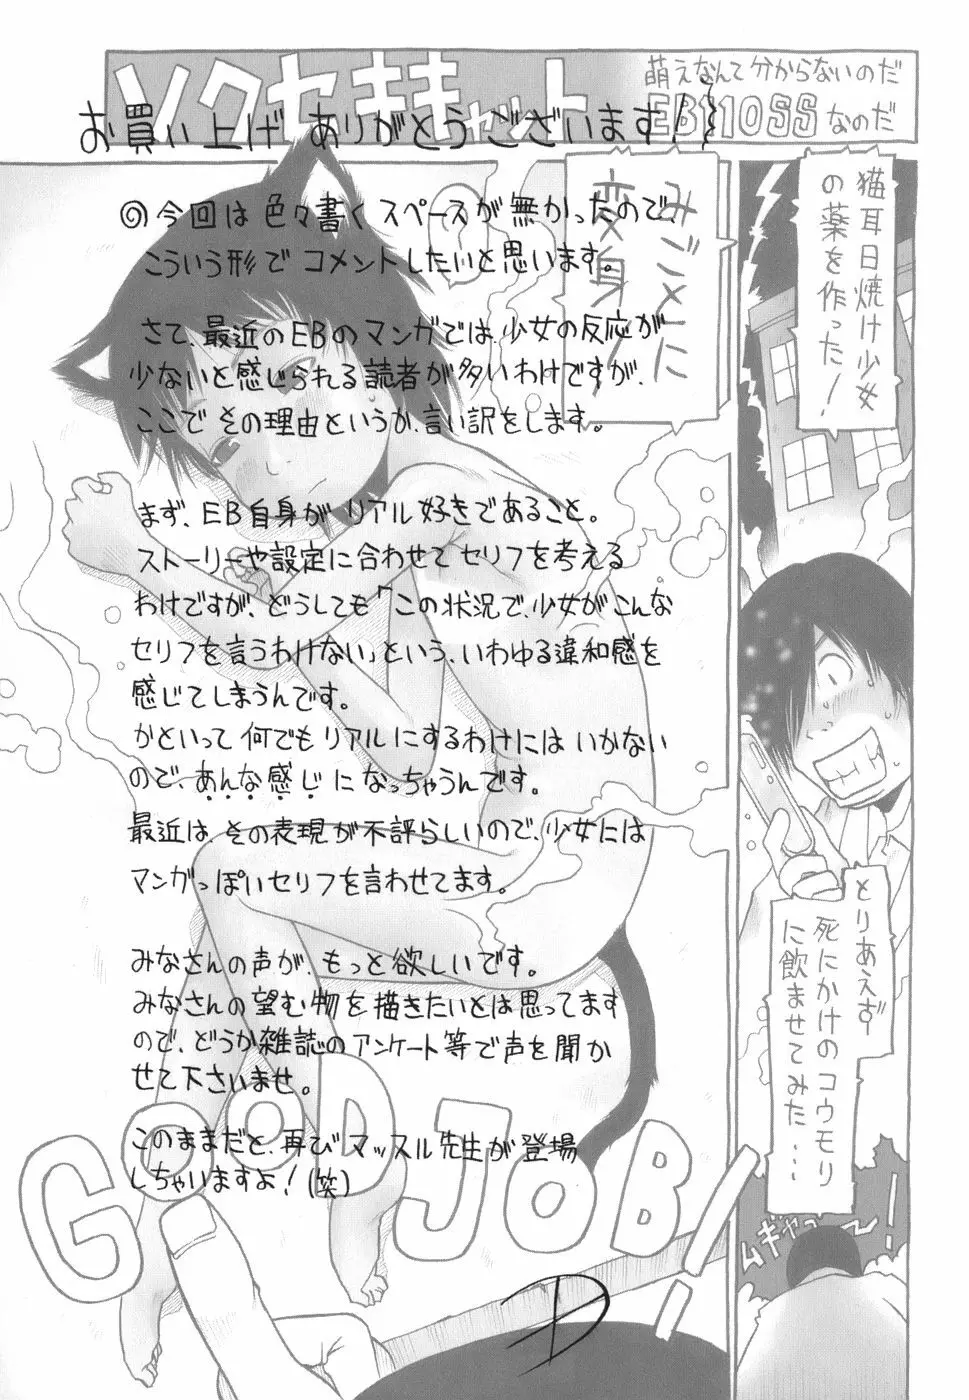 ソクセキキャット
萌えなんて分からないのだ
EB110SSなのだ
お買い上げ ありがとうございます!
猫耳日焼け少女
の薬を作った!
みごとに
変身!
◎今回は色々書くスペースが無かったので
こういう形でコメントしたいと思います。
さて、最近のEBのマンガでは、少女の反応が
少ないと感じられる読者が多いわけですが、
ここでその理由というか、言い訳をします。
まず、EB自身がリアル好きであること。
ストーリーや設定に合わせてセリフを考える
わけですが、どうしても「この状況で、少女がこんな
セリフを言うわけない」という、いわゆる違和感を
感じてしまうんです。
かといって何でもリアルにするわけにはいかない
ので、あんな感じになっちゃうんです。
最近は、その表現が不評らしいので、少女には
マンガっぽいセリフを言わせてます。
みなさんの声が、もっと欲しいです。
みなさんの望む物を描きたいとは思ってます
ので、どうか雑誌のアンケート等で声を聞か
せて下さいませ。
このままだと、再びマッスル先生が登場
しちゃいますよ!(笑)
とりあえず
死にかけのコウモリ
に飲ませてみた…
GOOD JOB!